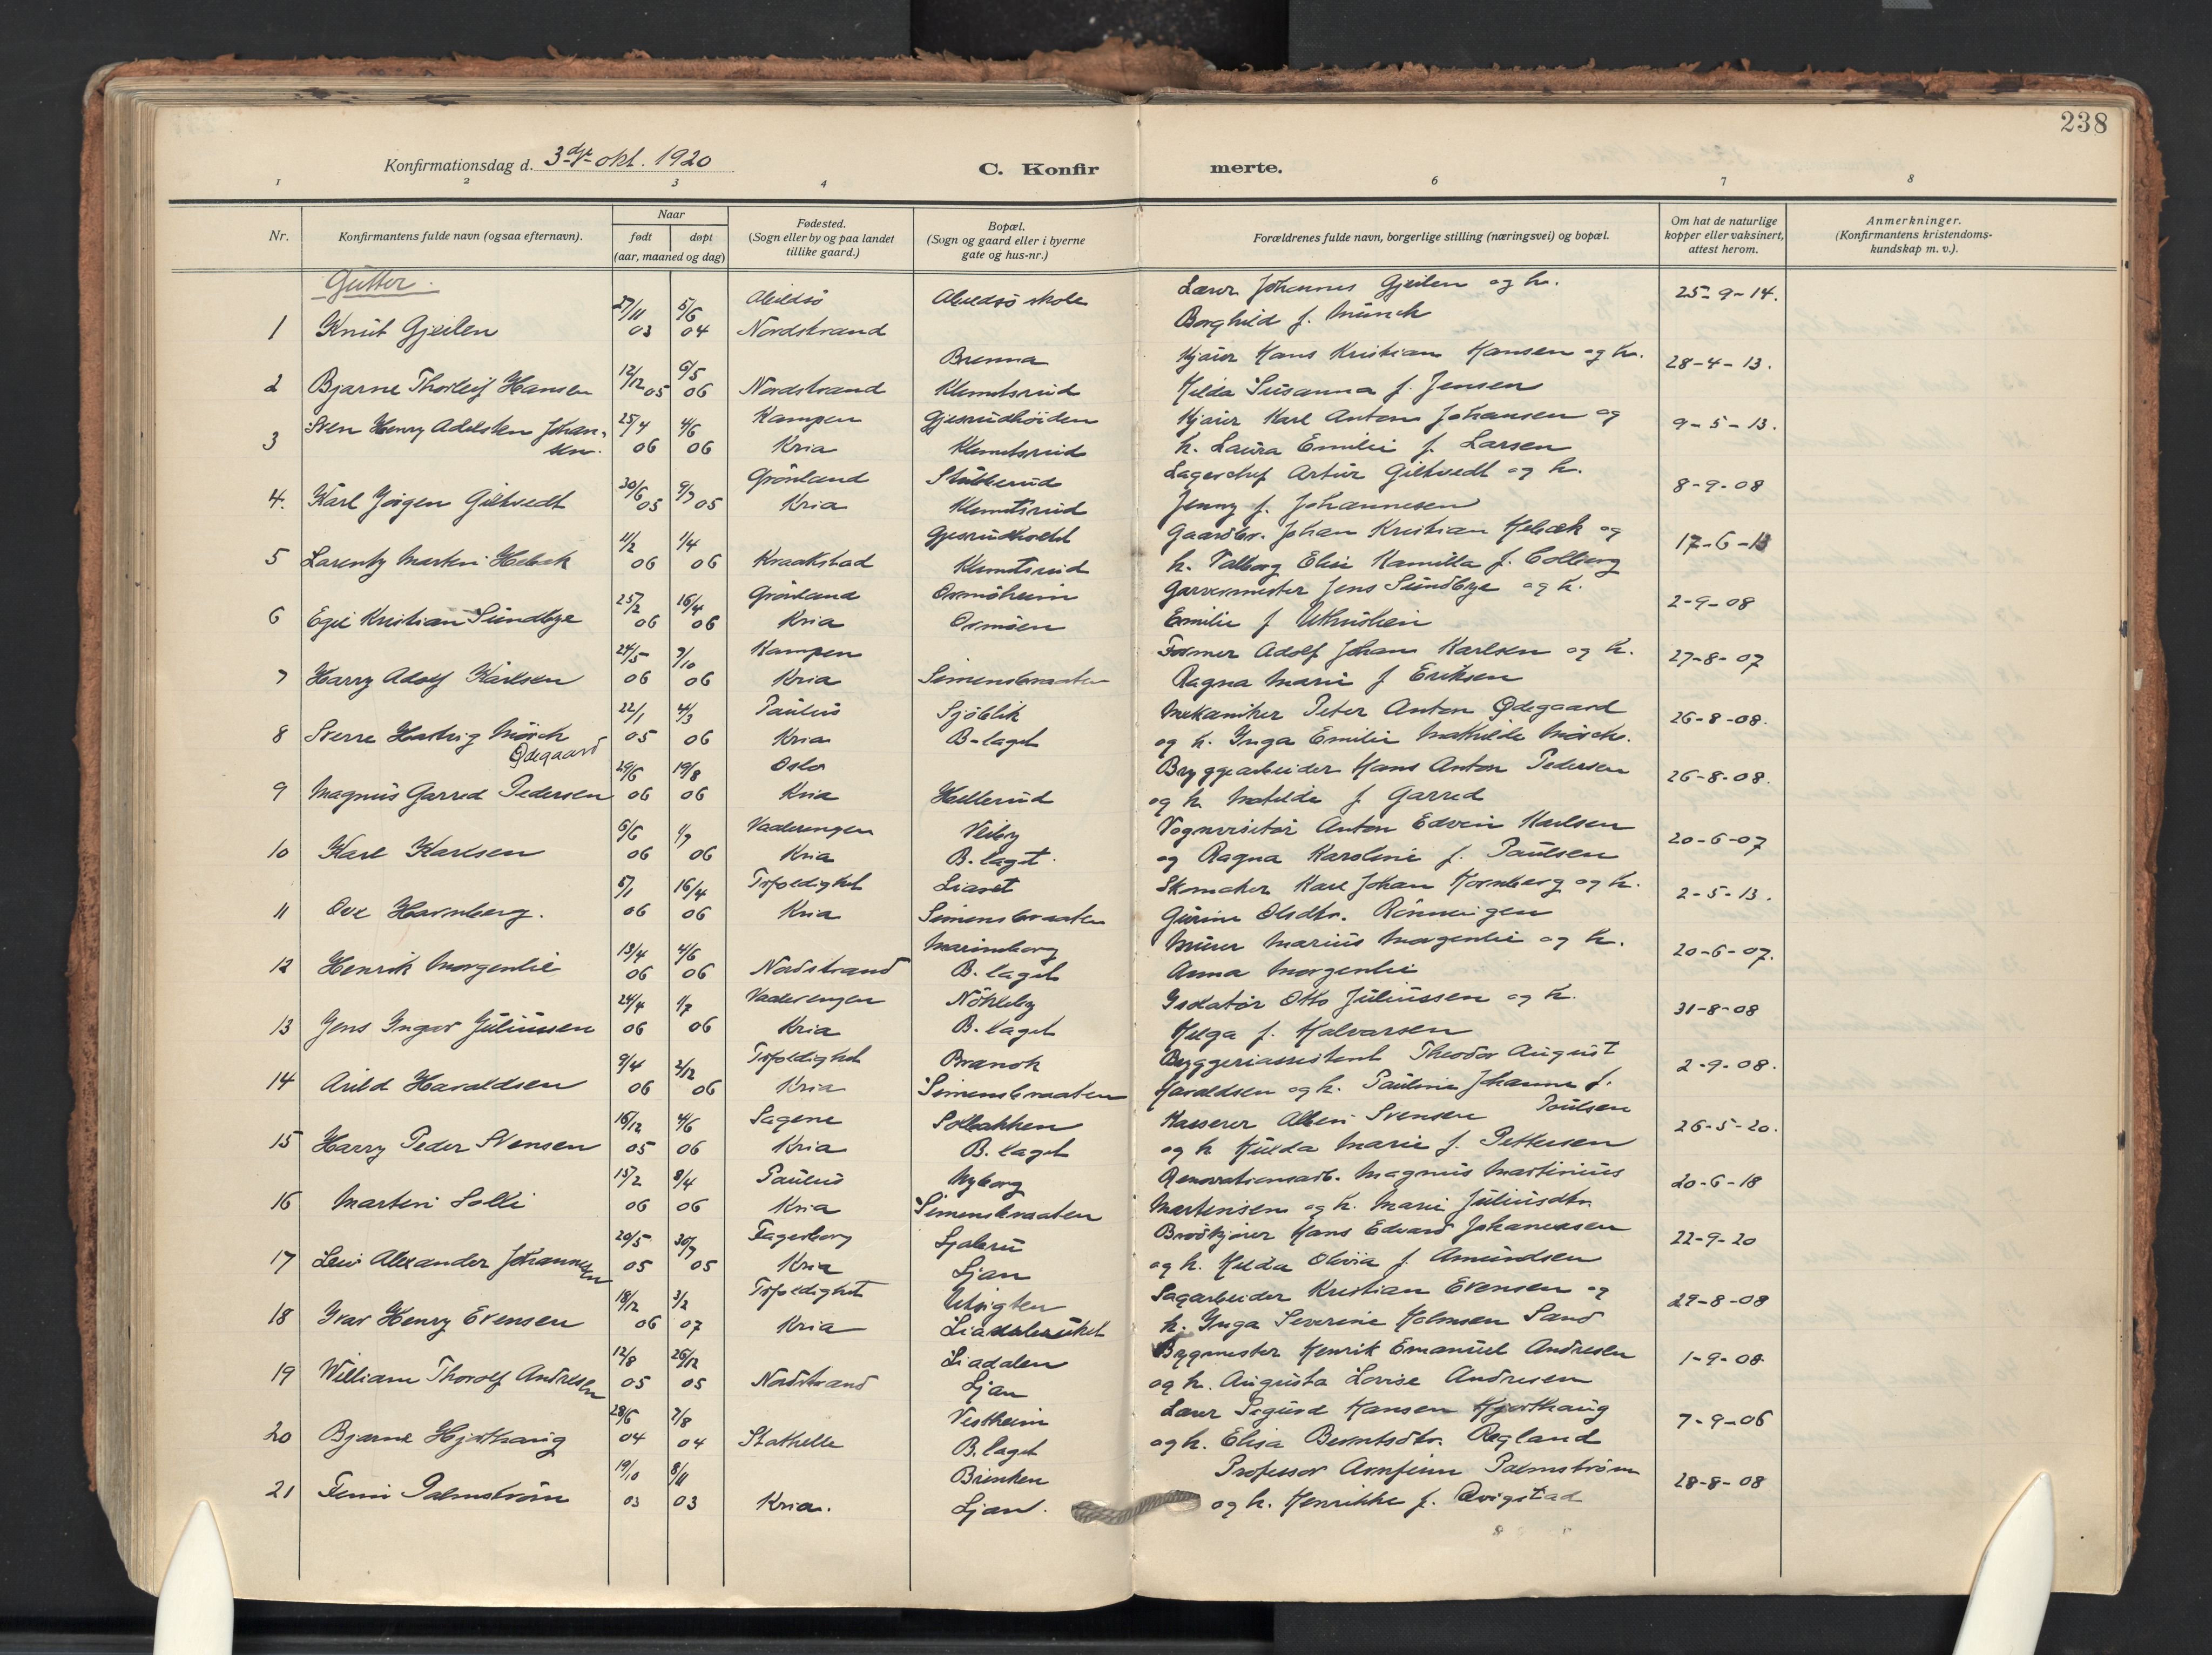 238
Konfirmationsdag d. 3dje okt. 1920
C. Konfir merte.
1 2 3 4 6 7 8
Nr.
Konfirmantens fulde navn (ogsaa efternavn).
Naar
født døpt
(aar, maaned og dag)
Fødested.
(Sogn eller by og paa landet
tillike gaard.)
Bopæl.
(Sogn og gaard eller i byerne
gate og hus-nr.)
Forældrenes fulde navn, borgerlige stilling (næringsvei) og bopæl.
Om hat de naturlige
kopper eller vaksinert,
attest herom.
Anmerkninger.
(Konfirmantens kristendoms-
kundskap m. v.).
Gutter.
27/11 5/6 Abildsö Abildsö skole Lærer Johannes Gjeilen og h. 25-9-14.
1 Knut Gjeilen 03 04 Nordstrand Borghild f. Munch
12/12 6/5 Brenna Kjører Hans Kristian Hansen og h. 28-4-13.
2 Bjarne Thorleif Hansen 05 06 Nordstrand Klemetsrud Hilda Susanna f. Jensen
Sven Henry Adelsten Johan- 25/4 4/6 Kampen Gjersrudhöiden Kjører Karl Anton Johansen og 9-5-13.
3 sen. 06 06 Kria Klemetsrud h. Laura Emilie f. Larsen
30/6 9/7 Grönland Stubberud Lagerchef Artur Giltvedt og h. 8-9-08
4. Karl Jörgen Giltvedt 05 05 Kria Klemetsrud Jenny f. Johannesen
11/2 1/4 Gjersrud Gaardbr. Johan Kristian Hebæk og 17-6-13
5 Larentz Martin Hebek 06 06 Kraakstad Klemetsrud h. Valborg Elise Kamilla f. Colberg
25/2 16/4 Grönland Ormöheim Garvermester Jens Sundbye og h. 2-9-08
6 Egil Kristian Sundbye 06 06 Kria Ormöen Emilie f
24/5 7/10 Kampen Former Adolf Johan Karlsen og h. 27-8-07
7 Harry Adolf Karlsen 06 06 Kria Simensbraaten Ragna Marie f Eriksen
22/1 4/3 Paulus Sjöblik Mekaniker Peter Anton Ødegaard 26-8-08.
8 Sverre Hartvig Mörch 05 06 Kria B-laget og h. Inga Emilie Mathilde Mörch.
Ødegaard
29/6 19/8 Oslo Bryggearbeider Hans Anton Pedersen 26-8-08.
9 Magnus Garred Pedersen 06 06 Kria Hellerud og h Matilde f. Garred
6/6 1/7 Vaalerengen Veiby Vognvisitör Anton Edvin Karlsen 20-6-07
10 Karl Karlsen 06 06 Kria B. laget. og Ragna Karoline f. Paulsen
5/1 16/4 Trefoldighet Liaset Skomaker Karl Johan Hornberg og h. 2-5-13.
11 Ove Hornberg. 06 06 Kria Simensbraaten Gurine Olsdtr. Rönningen
13/4 4/6 Marienborg Murer Marius Morgenlie og h. 20-6-07.
12 Henrik Morgenlie 06 06 Nordstrand B. laget Anna Morgenlie
24/4 1/7 Vaalerengen Nökleby Isolatör Otto Juliussen og h. 31-8-08
13 Jens Ingvar Juliussen 06 06 Kria B. laget Helga f. Halvorsen
9/4 2/12 Trefoldighet Branok Bryggeriassistent Theodor August 2-9-08.
14 Arild Haraldsen 06 06 Kria Simensbraaten Haraldsen og h. Pauline Johanne f.
Poulsen
16/12 4/6 Sagene Solbakken Kasserer Albin Svensen 26-5-20.
15 Harry Peder Svensen 05 06 Kria B. laget og h Hulda Marie f. Pettersen
15/2 8/4 Paulus Nyborg Renovationsarb. Magnus Martinius 20-6-18
16 Martin Solli 06 06 Kria Simensbraaten Martinsen og h. Marie Juliusdtr.
20/5 30/7 Fagerborg Ljabru Brödkjører Hans Edvard Johannessen 22-9-20
17 Leiv Alexander Johannessen 05 05 Kria Ljan og h. Hilda Olivia f. Amundsen
18/12 3/2 Trefoldighet Utsigten Sagarbeider Kristian Evensen og 29-8-08
18 Ivar Henry Evensen 06 07 Kria Liadalsruket h. Inga Severine Holmsen Sand
12/8 26/12 Liadalen Bygmester Henrik Emanuel Andresen 1-9-08
19 William Thorolf Andresen 05 05 Nordstrand Ljan og h. Augusta Lovise Andresen
28/6 7/8 Vestheim Lærer Sigurd Hansen Hjorthaug 7-9-06
20 Bjarne Hjorthaug 04 04 Stathelle B. laget og h. Elisa Berntsdtr. Røgland
19/10 8/11 Brinken Professor Arnfinn Palmström 28-8-08
21 Finn Palmström 03 03 Kria. Ljan. og h. Henrikke f. Qvigstad